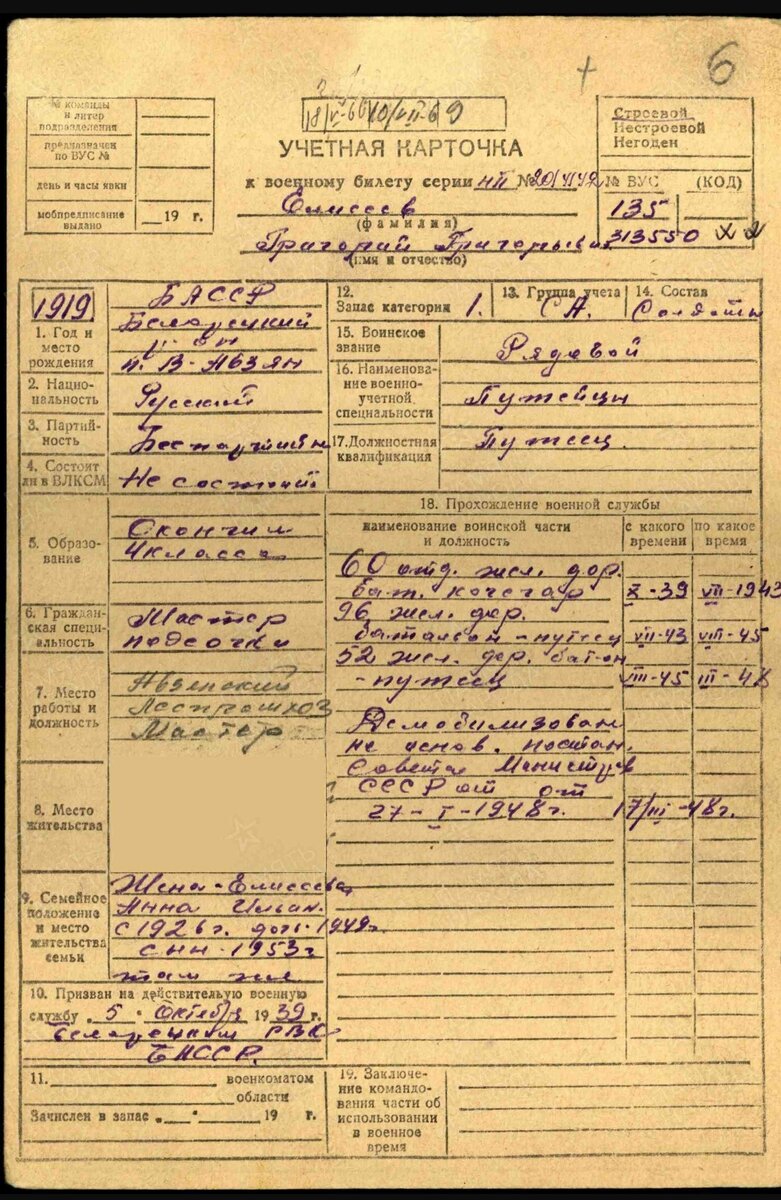 6
№ команды
и литер
подразделения
предназначен
по ВУС №
день и часы явки
мобпредписание
выдано
19 г.
18/V-66 10/VII-69
УЧЕТНАЯ КАРТОЧКА
к военному билету серии НП №
Елисеев
(фамилия)
Григорий Григорьевич
(имя и отчество)
Строевой
Нестроевой
Негоден
№ ВУС (КОД)
135
313550
1919
1. Год и
место
рождения
БАССР
Белорецкий
р-он
п. В-Авзян
2. Национальность
Русский
3. Партийность
Беспартийн
4. Состоит
ли в ВЛКСМ
Не состоит
5. Образование
Окончил
4 класса
6. Гражданская специальность
Мастер
подсочки
7. Место
работы и
должность
Авзянский
Леспромхоз
Мастер
8. Место
жительства
9. Семейное
положение
и место
жительства
семьи
Жена - Елисеева
Анна Ильин.
с 1926 г. дочь-1949г.
сын-1953г
там же
10. Призван на действительную военную
службу „5“ Октября 1939 г.
Белорецким РВК
БАССР.
11. военкоматом
области
Зачислен в запас „ “ 19 г.
12.
Запас категории 1.
13. Группа учета
СА.
14. Состав
Солдаты
15. Воинское
звание
Рядовой
16. Наименование военно-
учетной
специальности
Путейцы
17. Должностная
квалификация
Путеец.
18. Прохождение военной службы
наименование воинской части
и должность
с какого
времени
по какое
время
60 отд. жел. дор.
бат. кочегар X-39 VII-1943
96 жел. дор.
батальон - путеец VII-43 VIII-45
52 жел. дор. батон
- путеец VIII-45 III-48
Демобилизован
на основ. постан.
Совета Министров
СССР от от
27-I-1948г. 17/III-48г.
19. Заключе-
ние командо-
вания части об
использовании
в военное
время